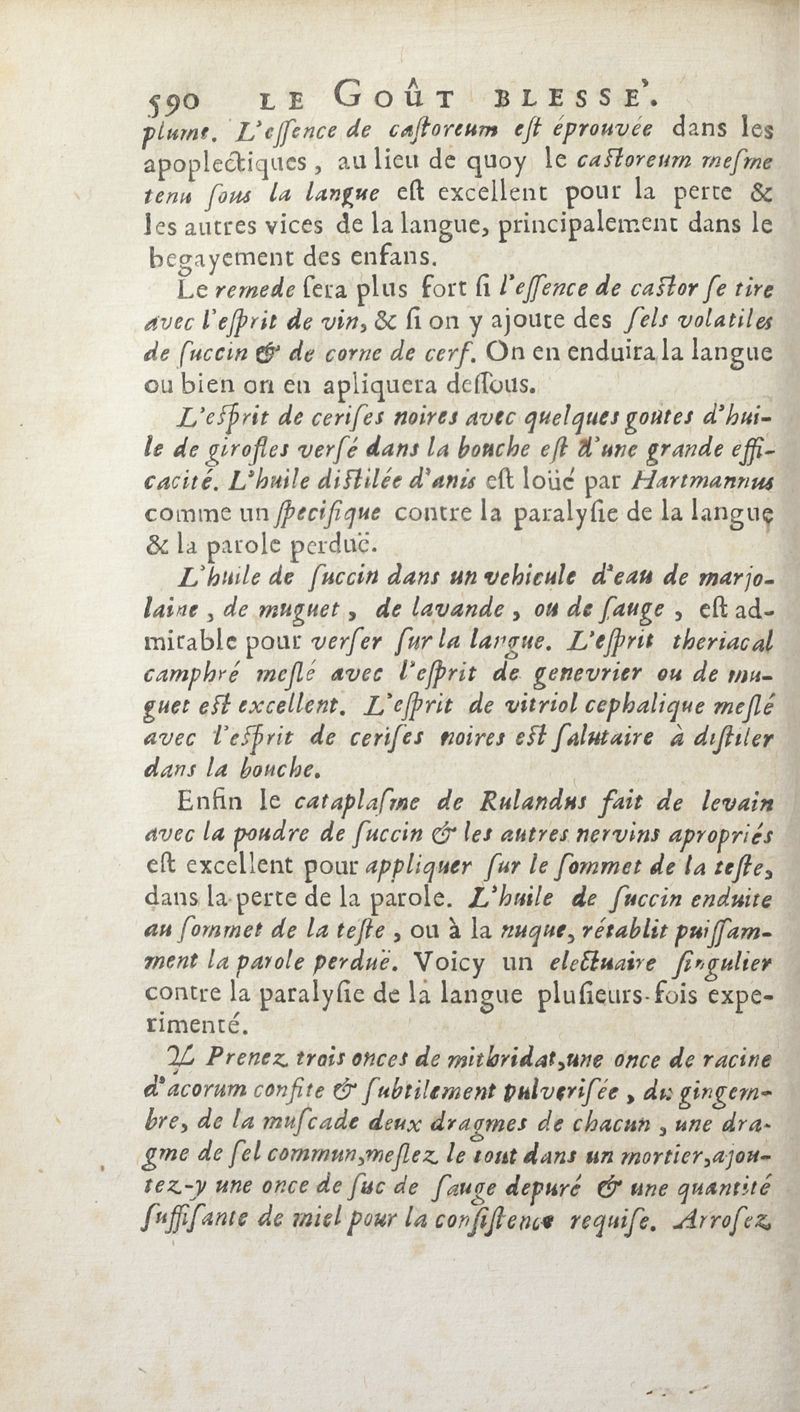 590 LE GOÛT BLESSE'.
plume. L'eſſence de caſtoreum eſt éprouvée dans les
apoplectiques, au lieu de quoy le caſtoreum meſme
tenu ſous la langue eſt excellent pour la perte &
les autres vices de la langue, principalement dans le
begayement des enfans.
Le remede ſera plus fort ſi l'eſſence de caſtor ſe tire
avec l'eſprit de vin, & ſi on y ajoute des ſels volatiles
de ſuccin & de corne de cerf. On en enduira la langue
ou bien on en apliquera deſſous.
L'eſprit de ceriſes noires avec quelques goutes d'hui-
le de girofles verſé dans la bouche eſt d'une grande effi-
cacité. L'huile diſtilée d'anis eſt loüé par Hartmannus
comme un ſpecifique contre la paralyſie de la langue
& la parole perduë.
L'huile de ſuccin dans un vehicule d'eau de marjo-
laine, de muguet, de lavande, ou de ſauge, eſt ad-
mirable pour verſer ſur la langue. L'eſprit theriacal
camphré meſlé avec l'eſprit de genevrier ou de mu-
guet eſt excellent. L'eſprit de vitriol cephalique meſlé
avec l'eſprit de ceriſes noires eſt ſalutaire à diſtiler
dans la bouche.
Enfin le cataplaſme de Rulandus fait de levain
avec la poudre de ſuccin & les autres nervins apropriés
eſt excellent pour appliquer ſur le ſommet de la teſte,
dans la perte de la parole. L'huile de ſuccin enduite
au ſommet de la teſte, ou à la nuque, rétablit puiſſam-
ment la parole perduë. Voicy un electuaire ſingulier
contre la paralyſie de la langue pluſieurs-fois expe-
rimenté.
℞ Prenez trois onces de mithridat, une once de racine
d'acorum confite & ſubtilement pulveriſée, du gingem-
bre, de la muſcade deux dragmes de chacun, une dra-
gme de ſel commun, meſlez le tout dans un mortier, ajou-
tez-y une once de ſuc de ſauge depuré & une quantité
ſuffiſante de miel pour la conſiſtence requiſe. Arroſez